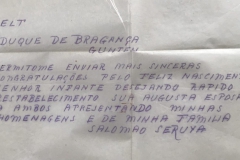 ELT
DUQUE DE BRAGANÇA
GUNTEN
PERMITOME ENVIAR MAIS SINCERAS
CONGRATULAÇÕES PELO FELIZ NASCIMENT
SENHOR INFANTE DESEJANDO RAPIDO
RESTABELECIMENTO SUA AUGUSTA ESPOSA
A AMBOS APRESENTANDO MINHAS
HOMENAGENS E DE MINHA FAMILIA
SALOMÃO SERUYA